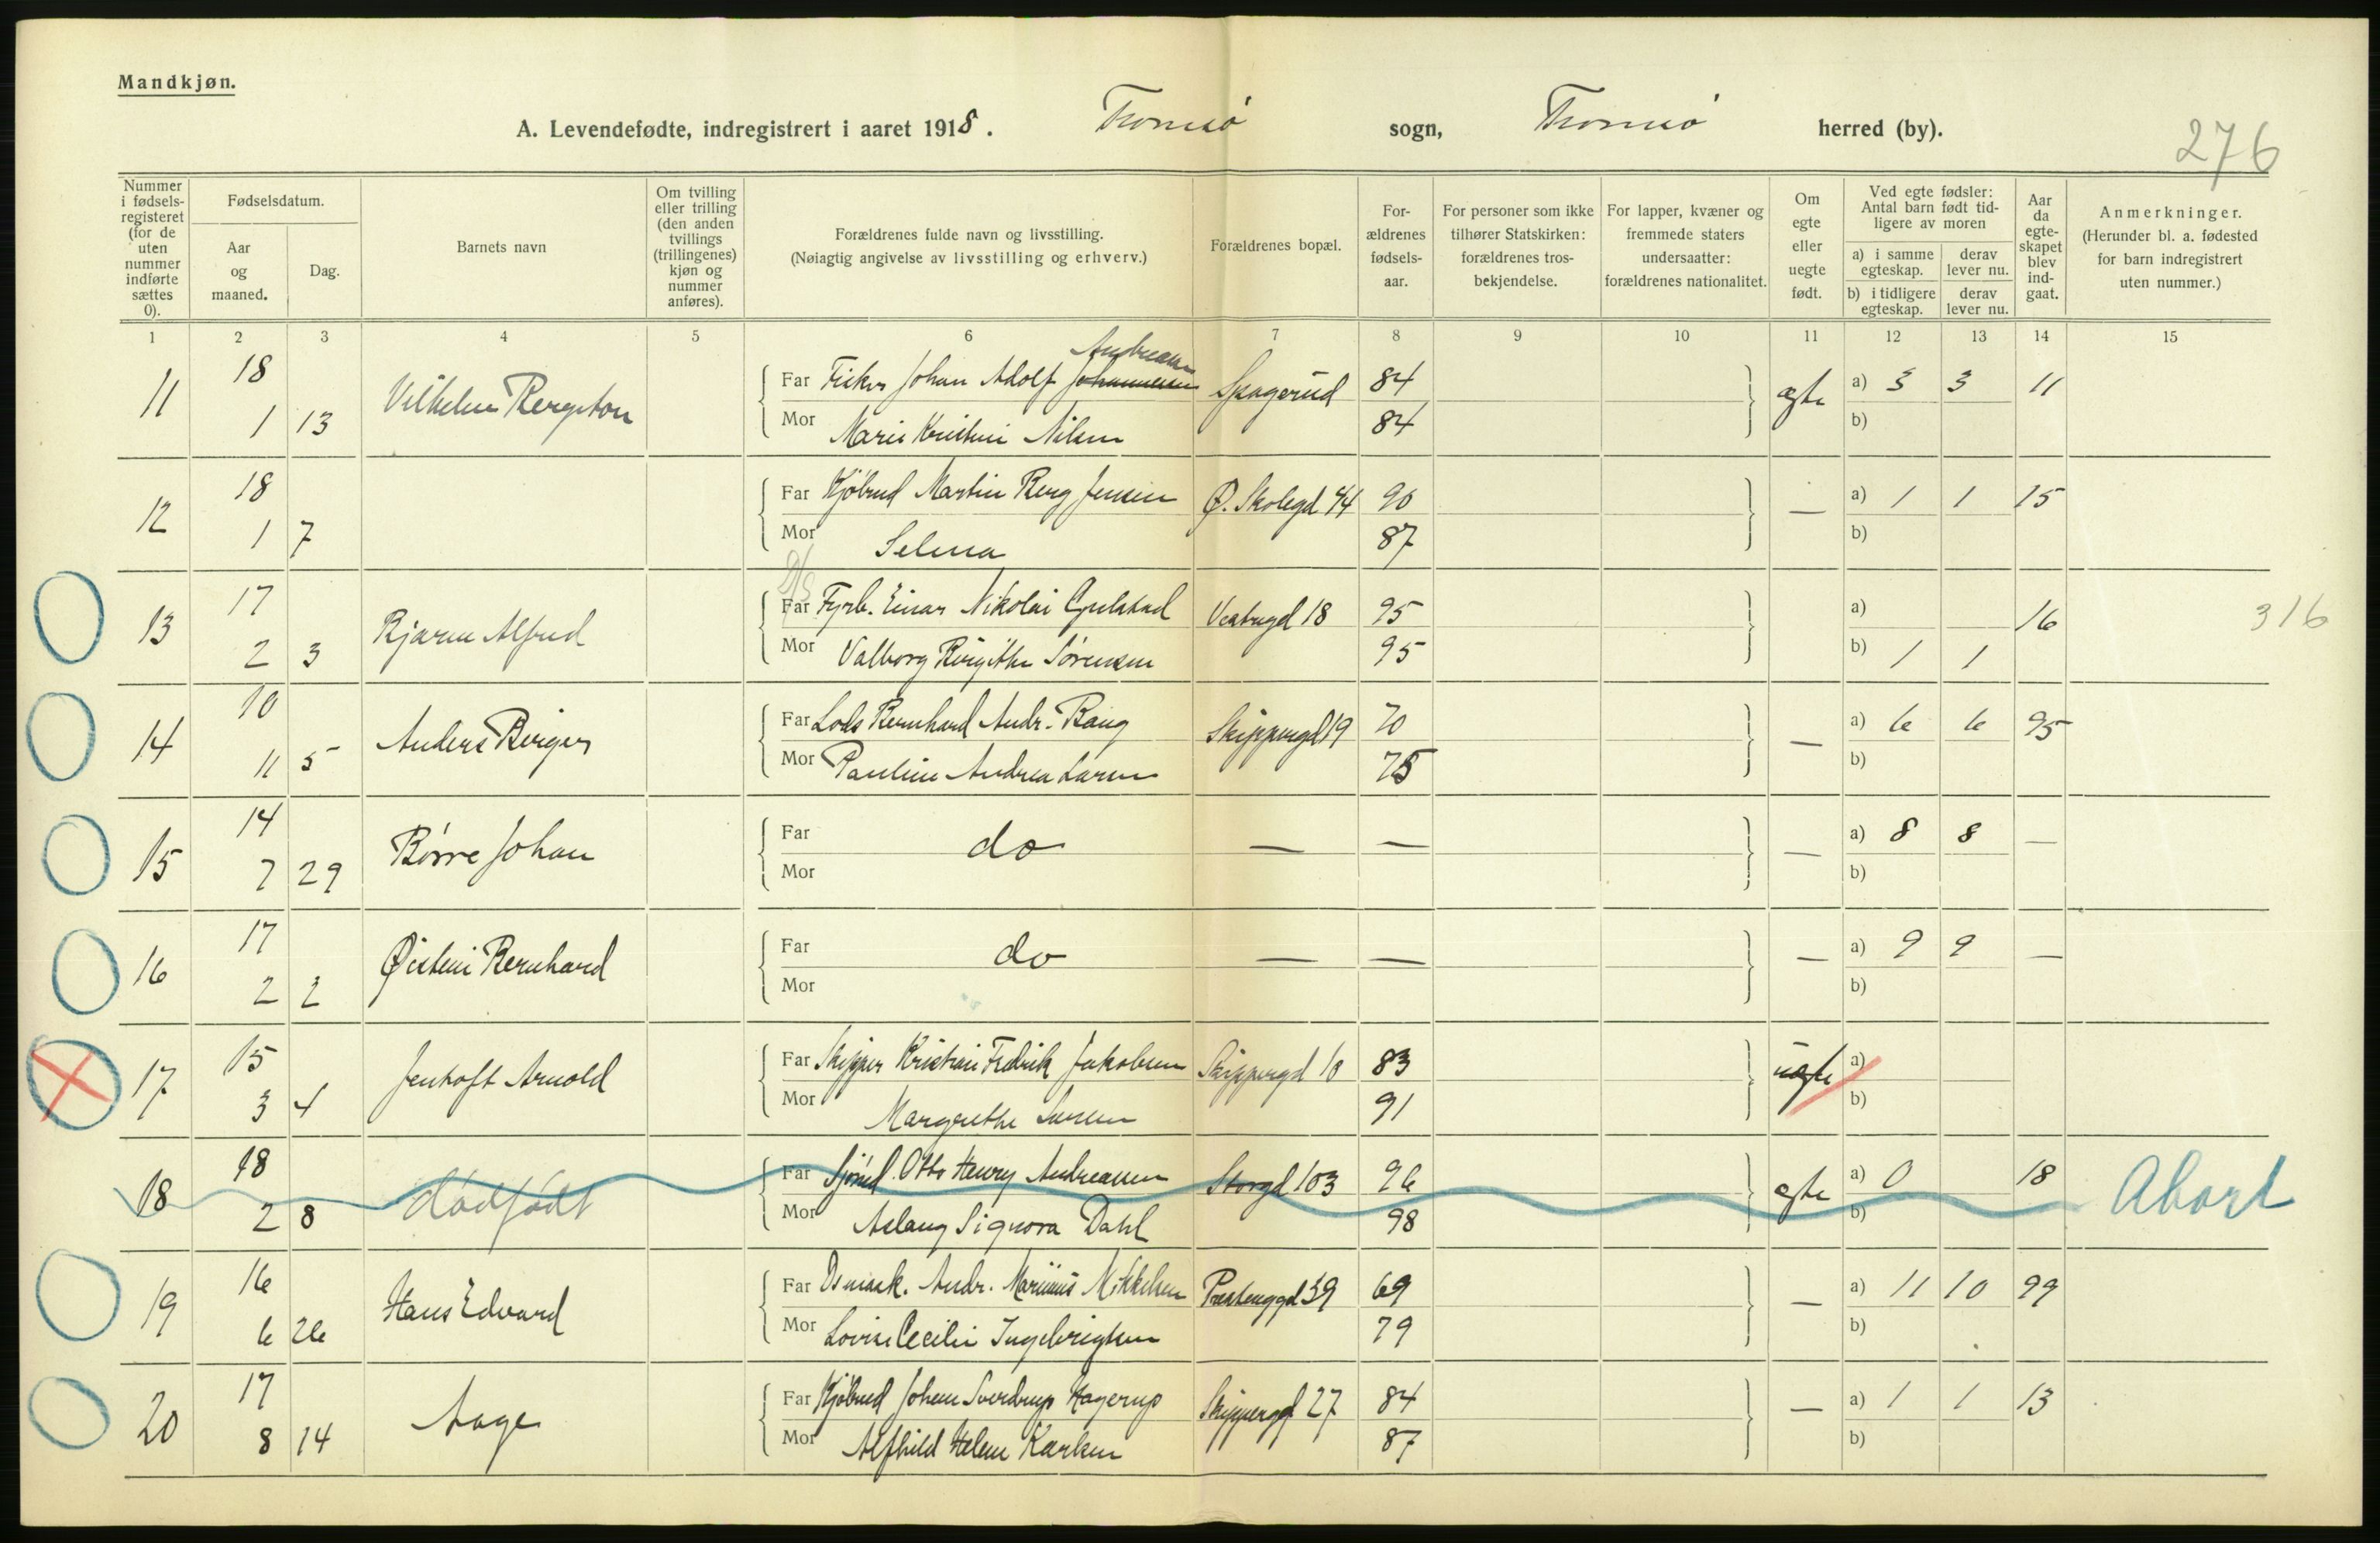 Mandkjøn.
A. Levendefødte, indregistrert i aaret 1918. Tromsø sogn, Tromsø herred (by).
276
Nummer i fødselsregisteret (for de uten nummer indførte sættes 0).
Fødselsdatum.
Aar og maaned.
Dag.
Barnets navn
Om tvilling eller trilling (den anden tvillings (trillingenes) kjøn og nummer anføres).
Forældrenes fulde navn og livsstilling.
(Nøiagtig angivelse av livsstilling og erhverv.)
Forældrenes bopæl.
Forældrenes fødselsaar.
For personer som ikke tilhører Statskirken: forældrenes trosbekjendelse.
For lapper, kvæner og fremmede staters undersaatter: forældrenes nationalitet.
Om egte eller uegte født.
Ved egte fødsler: Antal barn født tidligere av moren
a) i samme egteskap. derav lever nu.
b) i tidligere egteskap. derav lever nu.
Aar da egteskapet blev indgaat.
Anmerkninger.
(Herunder bl. a. fødested for barn indregistrert uten nummer.)
1 2 3 4 5 6 7 8 9 10 11 12 13 14 15
Andreassen
11 18 Far Fisker Johan Adolf Johannessen 84 egte a) 3 3 11
1 13 Vilhelm Bergeton Mor Marie Kristine Nilsen 84 b)
12 18 Far Kjøbmd Martin Berg Jensen Ø. Skolegd 44 90 — a) 1 1 15
1 7 Mor Selma 87 b)
13 17 Far Fyrb. Einar Nikolai Gulstad Vestregd 18 95 a) 16 316
2 3 Bjarne Alfred Mor Valborg Birgithe Sørensen 95 b) 1 1
14 10 Far Lods Bernhard Andr. Bang Skippergd 19 70 — a) 6 6 95
11 5 Anders Birger Mor Pauline Andrea Larsen 75 b)
15 14 Far do — — — a) 8 8 —
7 29 Børre Johan Mor b)
16 17 Far do — — — a) 9 9 —
2 2 Øistein Bernhard Mor b)
17 15 Far Skipper Kristian Fredrik Jakobsen Skippergd 10 83 uegte a)
3 4 Jentoft Arnold Mor Margrethe 91 b)
18 18 Far Sjømd. Otto Henry Andreassen Storgd 103 96 egte a) 0 18 Abort
2 8 dødfødt Mor Aslaug Signora Dahl 98 b)
19 16 Far Andr. Marinius Mikkelsen 39 69 — a) 11 10 99
6 26 Hans Edvard Mor Lovise Cecilie Ingebrigtsen 79 b)
20 17 Far Kjøbmd Johan Sverdrup Hagerup Skippergd 27 84 — a) 1 1 13
8 14 Aage Mor Alfhild Helene Karlsen 87 b)